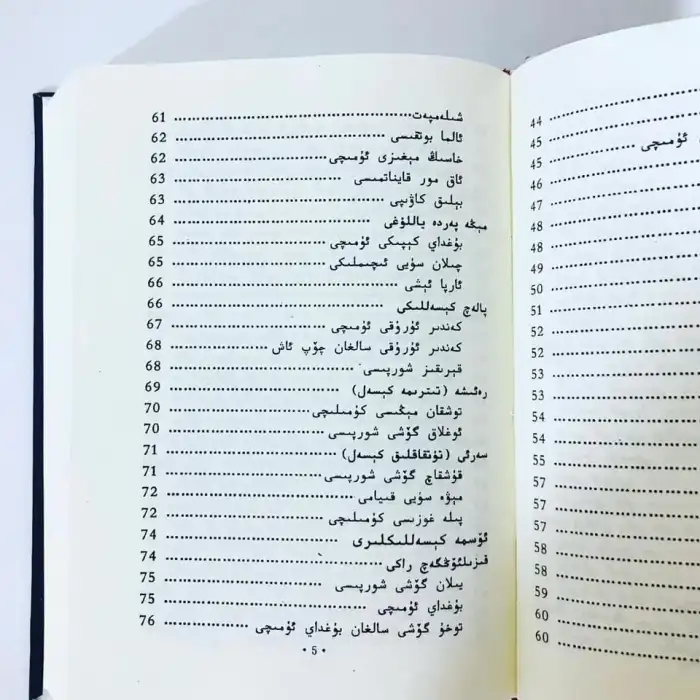 شىلەمپەت 61
ئالما بوتقىسى 62
خاسىڭ مېغىزى ئۇمىچى 62
ئاق مور قاينا‌تمىسى 63
بېلىق كاۋىپى 63
مېڭە پەردە ياللۇغى 64
بۇغداي كېپىكى ئۇمىچى 65
چىلان سۈيى ئىچىملىكى 65
ئارپا ئېشى 66
پالەچ كېسەللىكى 66
كەندىر ئۇرۇقى ئۇمىچى 67
كەندىر ئۇرۇقى سالغان چۆپ ئاش 68
قېرىقىز شورپىسى 68
رەئىشە (تىترىمە كېسەل) 69
توشقان مېڭىسى كۆمىلىچى 70
ئوغلاق گۆشى شورپىسى 70
سەرئى (تۇتقاقلىق كېسەل) 71
قۇشقاچ گۆشى شورپىسى 71
مېۋە سۈيى قىيامى 72
پىلە غوزىسى كۆمىلىچى 72
ئۆسمە كېسەللىكلىرى 74
قىزىلئۆڭگەچ راكى 74
يىلان گۆشى شورپىسى 75
بۇغداي ئۇمىچى 75
توخۇ گۆشى سالغان بۇغداي ئۇمىچى 76
· 5 ·
44
45
ئۇمىچى 45
46
47
48
48
49
50
51
52
52
53
53
54
54
55
57
57
57
58
58
59
60
60